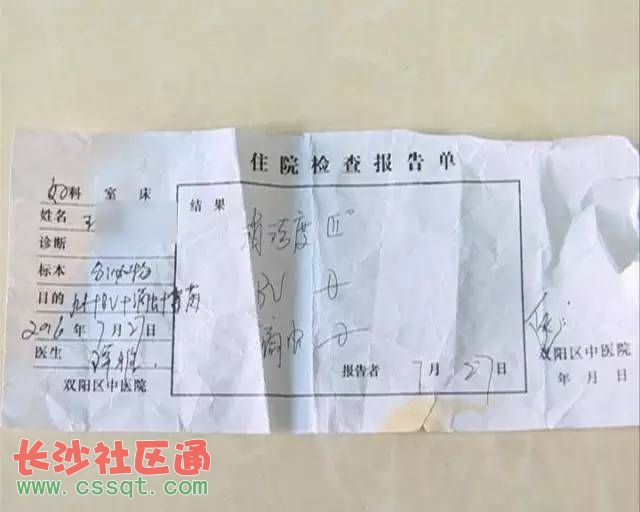 住院检查报告单
妇科 室 床
姓名 王
诊断
标本 分泌物
目的
2016年7月27日
医生
双阳区中医院
结果
清洁度 IV°
BV
滴虫
报告者 7月27日
双阳区中医院
年 月 日
长沙社区通
www.cssqt.com